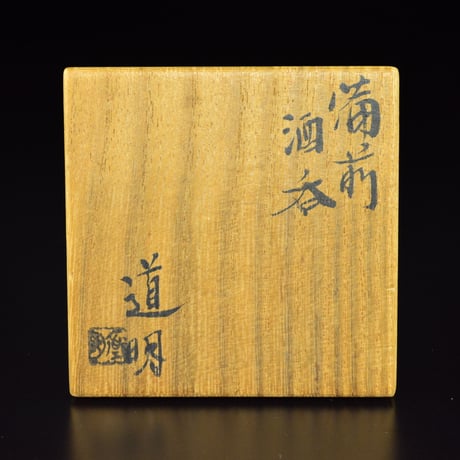 備前
酒呑
道明